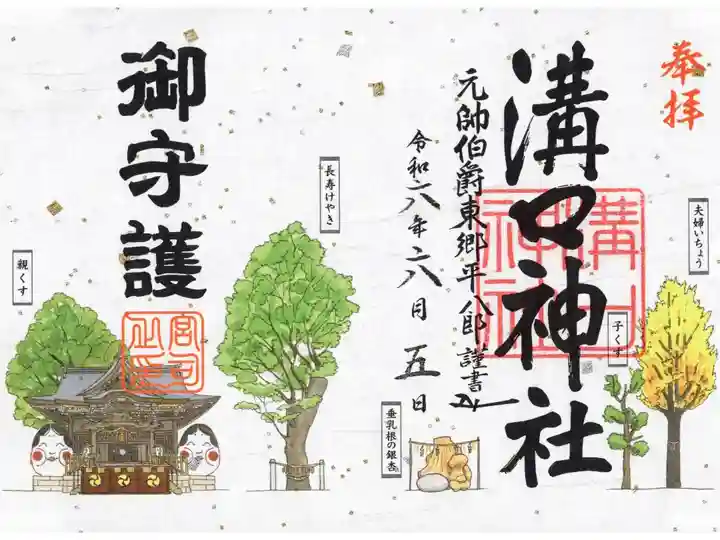 奉拝
溝口神社
溝口神社
元帥伯爵東郷平八郎謹書
令和六年六月五日
御守護
宮司之印
夫婦いちょう
子くす
垂乳根の銀杏
長寿けやき
親くす